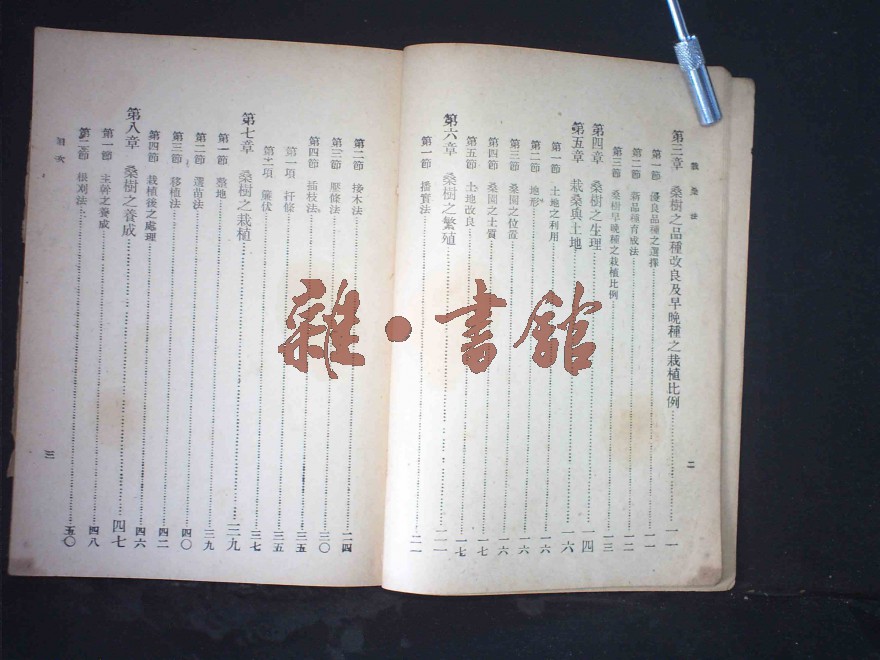 栽桑法
第三章 桑樹之品種改良及早晚種之栽植比例……一一
第一節 優良品種之選擇……一一
第二節 新品種育成法……一二
第三節 桑樹早晚種之栽植比例……一三
第四章 桑樹之生理……一四
第五章 栽桑與土地……一六
第一節 土地之利用……一六
第二節 地形……一六
第三節 桑園之位置……一六
第四節 桑園之土質……一七
第五節 土地改良……一七
第六章 桑樹之繁殖……二一
第一節 播實法……二一
二
第二節 接木法……二四
第三節 壓條法……三〇
第四節 插枝法……三五
第一項 扦條……三五
第二項 簾伏……三七
第七章 桑樹之栽植……三九
第一節 整地……三九
第二節 選苗法……三九
第三節 移植法……四〇
第四節 栽植後之處理……四二
第八章 桑樹之養成……四七
第一節 主幹之養成……四八
第二節 根刈法……五〇
目次
三
雜·書館